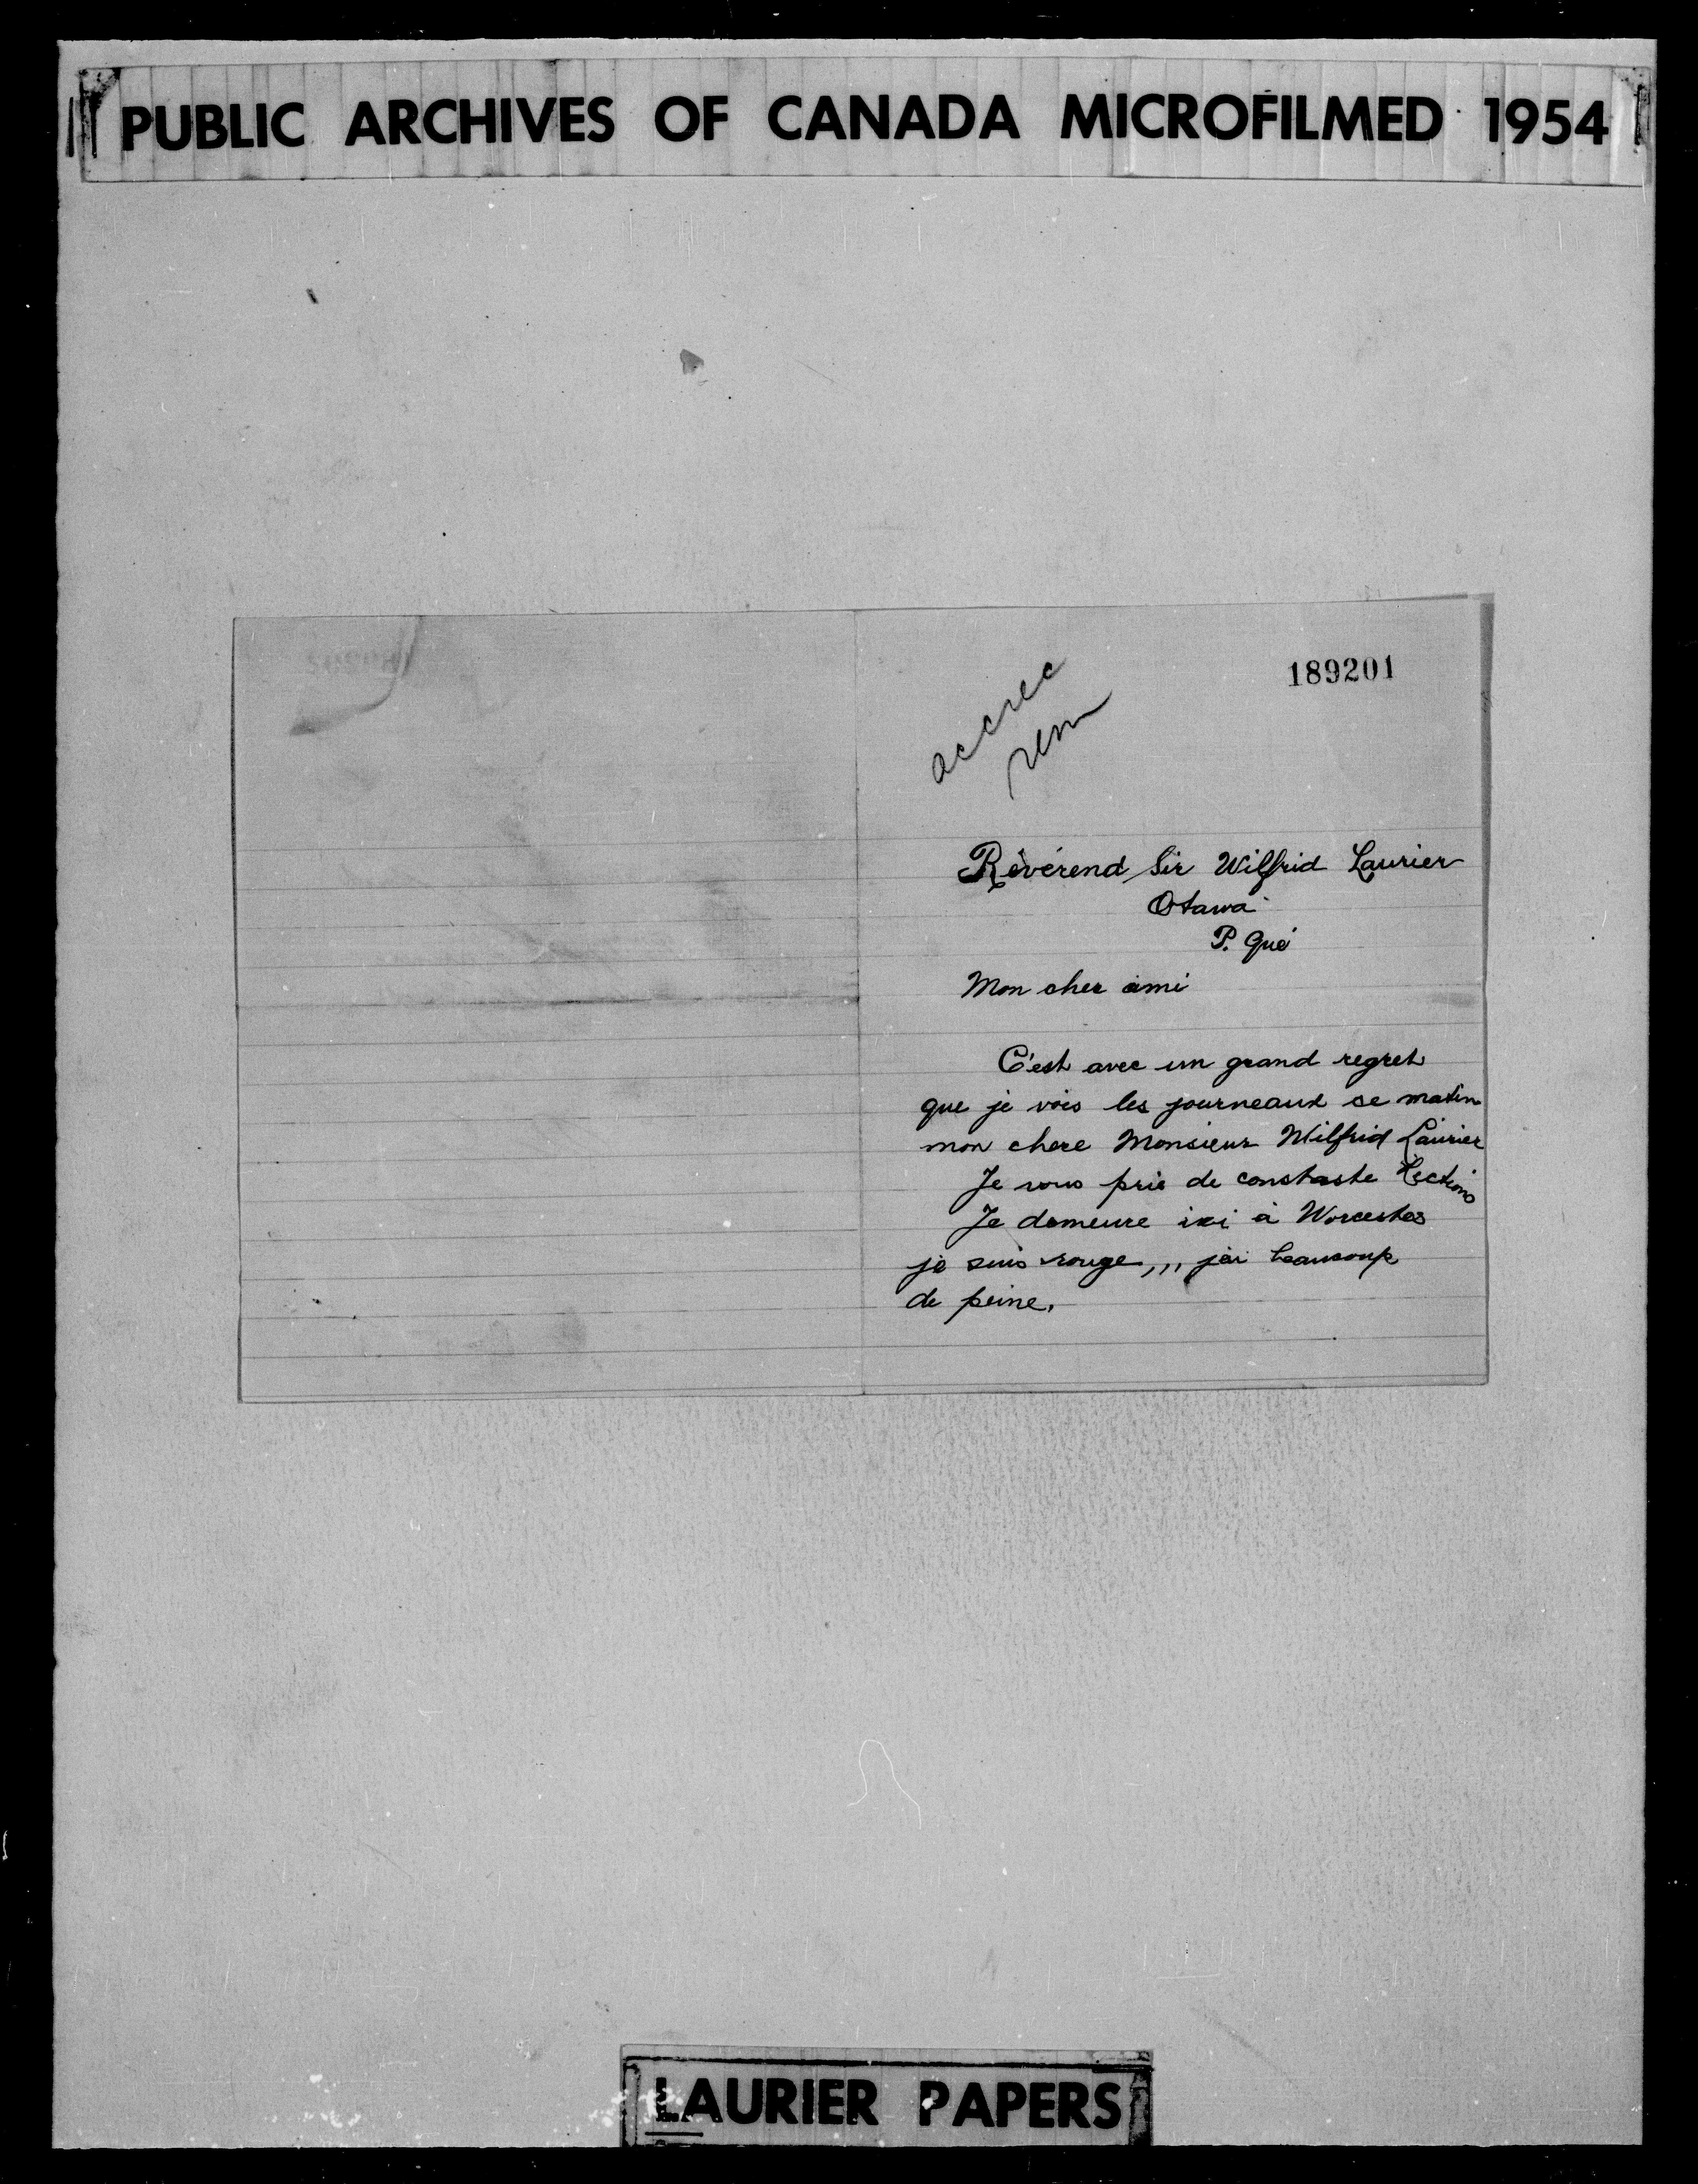 PUBLIC ARCHIVES OF CANADA MICROFILMED 1954
189201
accrec
rem
Révérend Sir Wilfrid Laurier
Otawa
P. Qué
Mon cher ami
C'est avec un grand regret
que je vois les journeaux se matin
mon chere Monsieur Wilfrid Laurier
Je vous prie de constaste lections
Je demeure ici à Worcester
je suis rouge,,, j'ai beaucoup
de peine.
LAURIER PAPERS